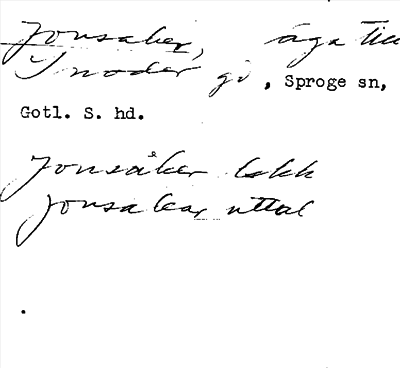 Jonsaker, äga till
Snoder gd, Sproge sn,
Gotl. S. hd.
Jonsåker
Jonsakar uttal